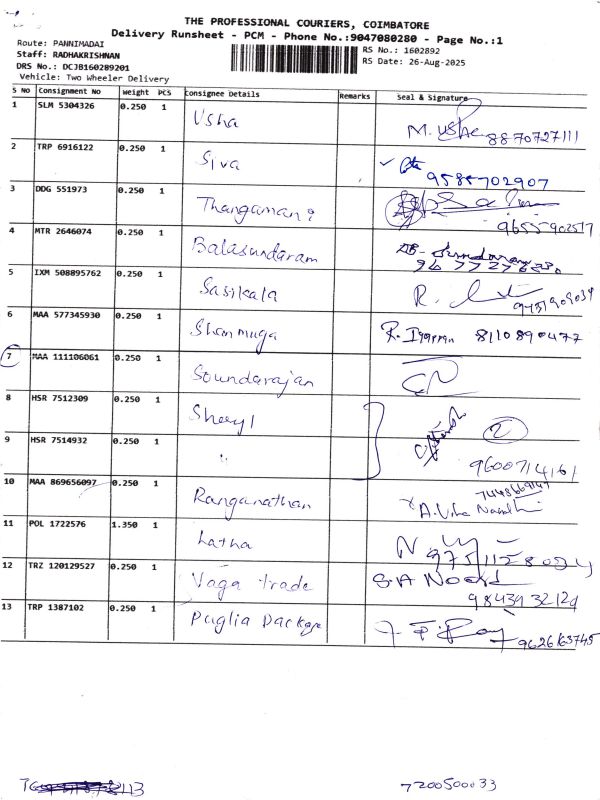 THE PROFESSIONAL COURIERS, COIMBATORE
Delivery Runsheet - PCM - Phone No.:9047080280 - Page No.:1
Route: PANNIMADAI
Staff: RADHAKRISHNAN
DRS No.: DCJB160289201
Vehicle: Two Wheeler Delivery
RS No.: 1602892
RS Date: 26-Aug-2025
S No Consignment No Weight PCS Consignee Details Remarks Seal & Signature
1 SLM 5304326 0.250 1 Usha M. Usha 8870727111
2 TRP 6916122 0.250 1 Siva 9585702907
3 DDG 551973 0.250 1 Thangamani 9655902517
4 MTR 2646074 0.250 1 Balasundaram
5 IXM 508895762 0.250 1 Sasikala R.
6 MAA 577345930 0.250 1 Shanmuga 8110890477
7 MAA 111106061 0.250 1 Soundarajan
8 HSR 7512309 0.250 1 Sheryl 2
9 HSR 7514932 0.250 1 " 9600714161
10 MAA 869656097 0.250 1 Ranganathan
11 POL 1722576 1.350 1 Latha
12 TRZ 120129527 0.250 1 Vaga trade
13 TRP 1387102 0.250 1 Puglia Package 9626163745
7200500033